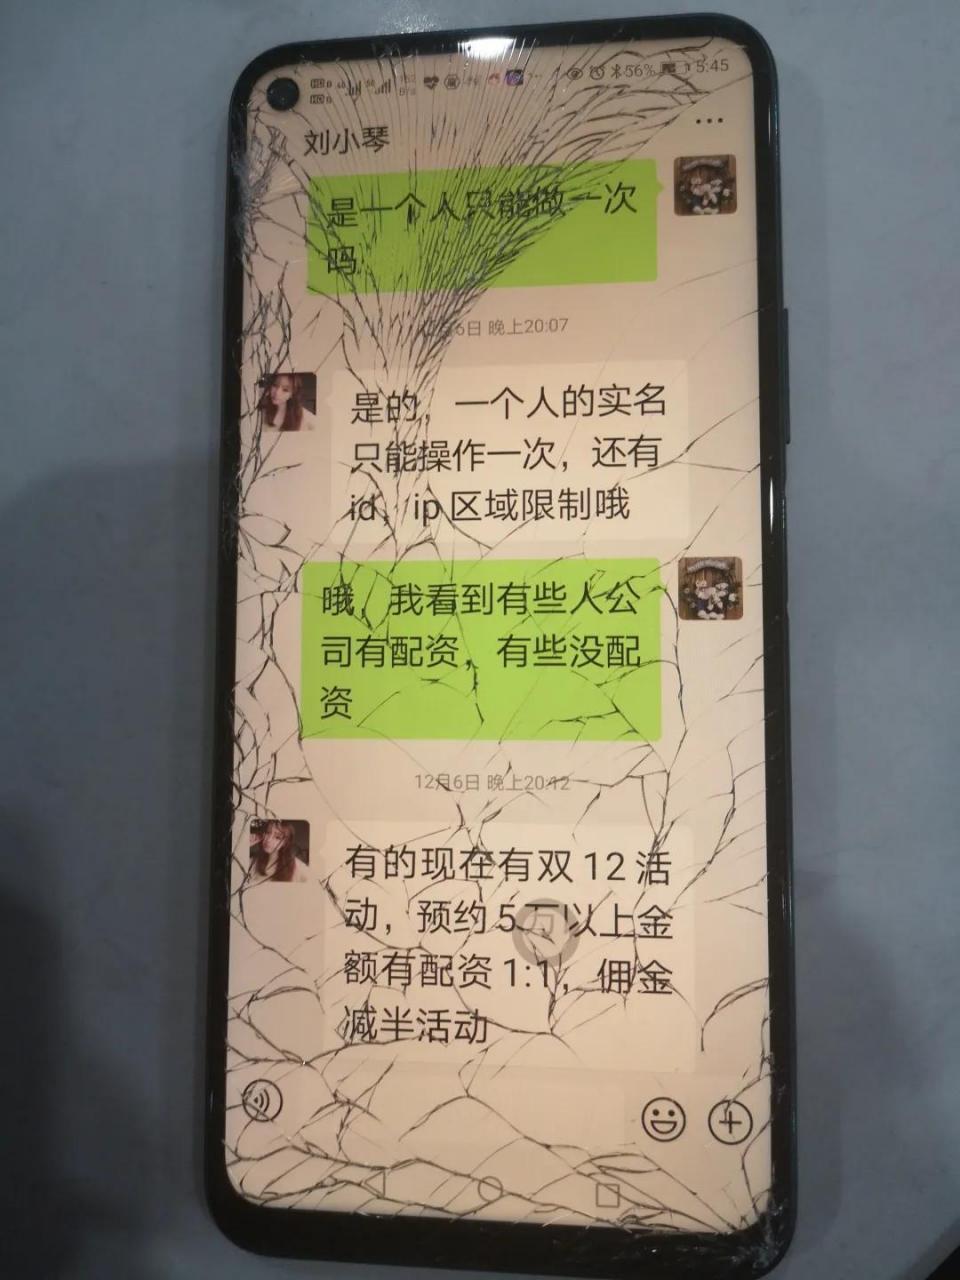 56% 5:45
刘小琴
是一个人只能做一次
吗
6日 晚上20:07
是的，一个人的实名
只能操作一次，还有
id，ip区域限制哦
哦，我看到有些人公
司有配资，有些没配
资
12月6日 晚上20:12
有的现在有双12活
动，预约5万以上金
额有配资1:1，佣金
减半活动